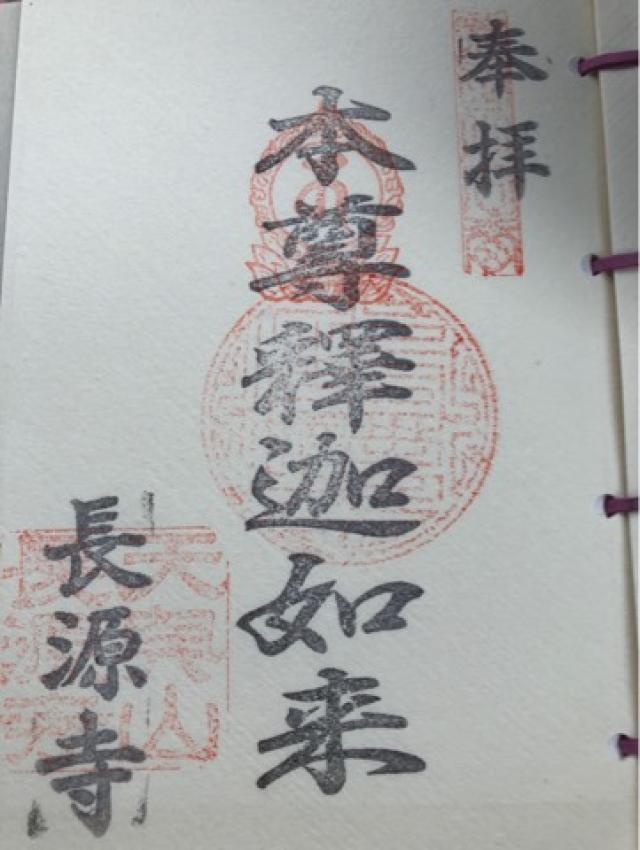 奉拝
本尊釋迦如来
長源寺